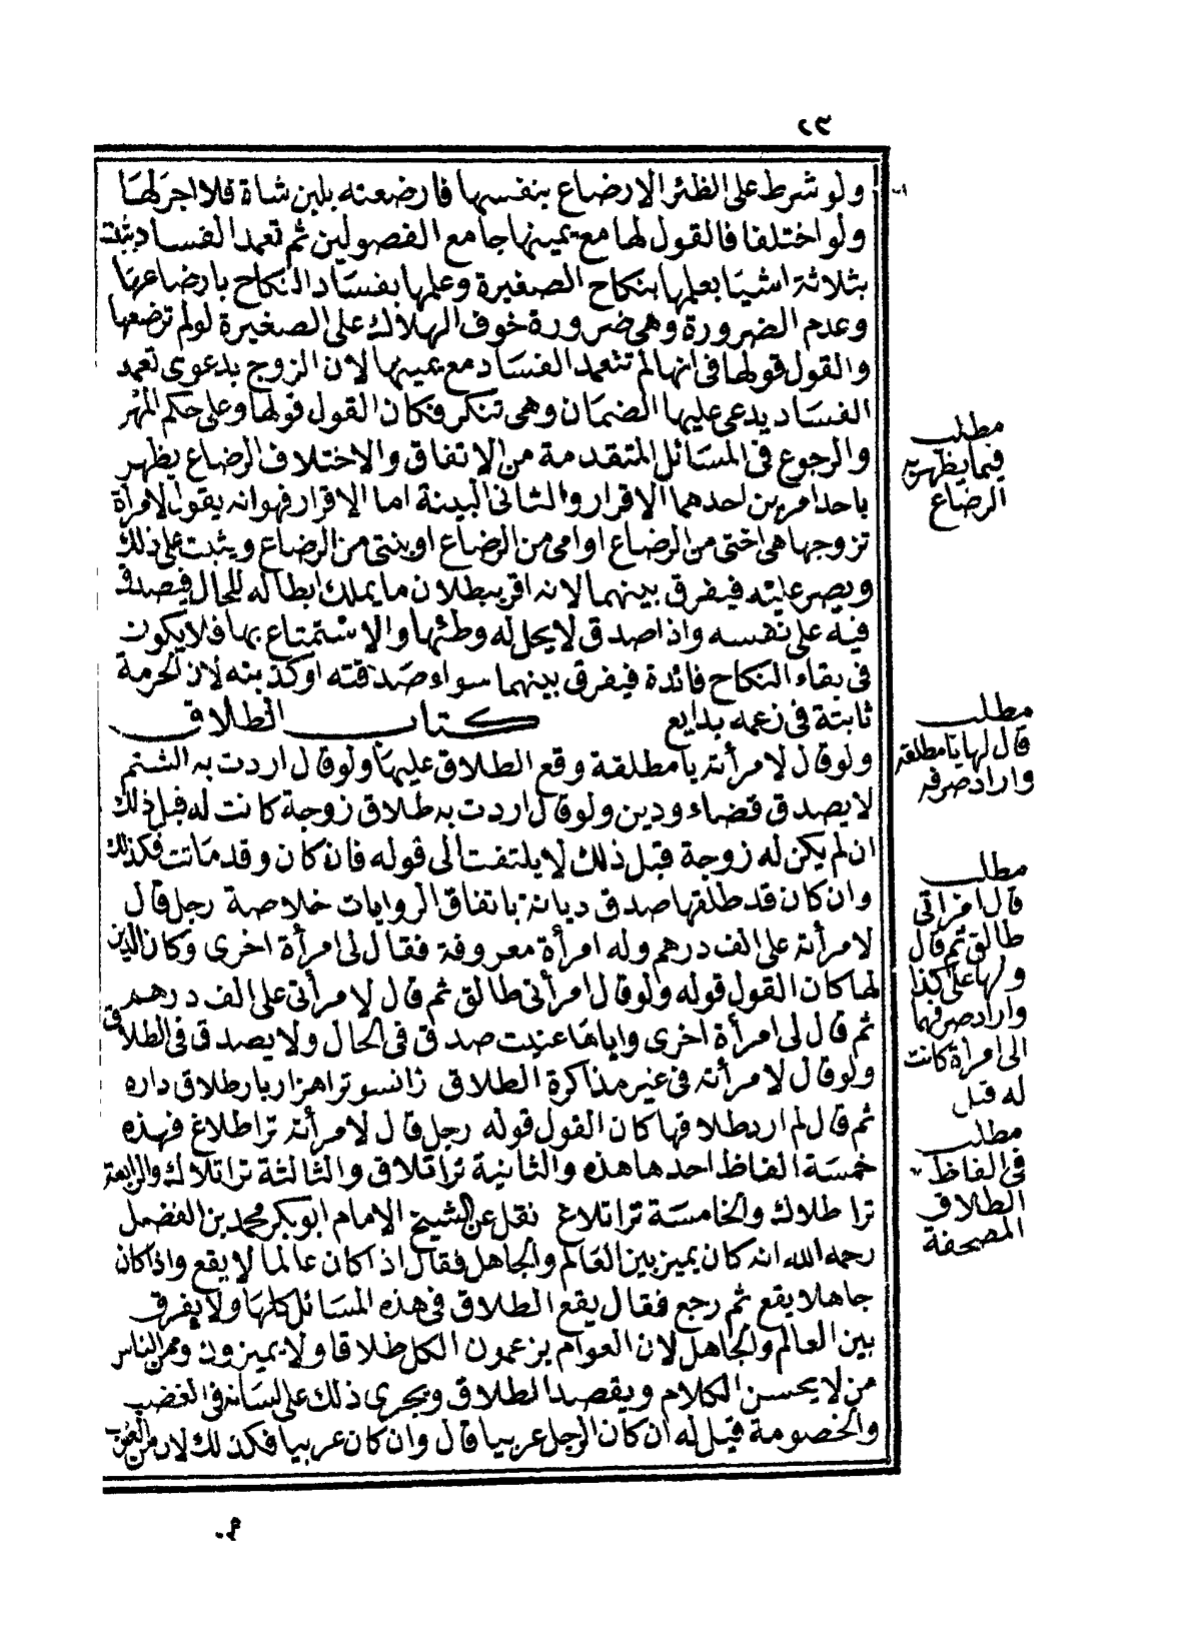 ٢٣
ولو شرط على الظئر الارضاع بنفسها فارضعته بلبن شاة فلا اجر لها
ولو اختلفا فالقول لها مع يمينها جامع الفصولين ثم تعمد الفساد يثبت
بثلاثة اشيا بعلمها بنكاح الصغيرة وعلمها بفساد النكاح بارضاعها
وعدم الضرورة وهى ضرورة خوف الهلاك على الصغيرة لو لم ترضعها
والقول قولها فى انها لم تتعمد الفساد مع يمينها لان الزوج بدعوى تعمد
الفساد يدعى عليها الضمان وهى تنكر فكان القول قولها وعلى حكم المهر
والرجوع فى المسائل المتقدمة من الاتفاق والاختلاف الرضاع يظهر
باحد امرين احدهما الاقرار والثانى البينة اما الاقرار فهو انه يقول لامرأة
تزوجها هى اختى من الرضاع او امى من الرضاع او بنتى من الرضاع ويثبت على ذلك
ويصر عليه فيفرق بينهما لانه اقر ببطلان ما يملك ابطاله للحال فيصدق
فيه على نفسه واذا صدق لا يحل له وطئها والاستمتاع بها فلا يكون
فى بقاء النكاح فائدة فيفرق بينهما سواء صدقته او كذبته لان الحرمة
ثابتة فى زعمه بدايع كتاب الطلاق
ولو قال لامرأته يا مطلقة وقع الطلاق عليها ولو قال اردت به الشتم
لا يصدق قضاء ودين ولو قال اردت به طلاق زوجة كانت له قبل ذلك
ان لم يكن له زوجة قبل ذلك لا يلتفت الى قوله فان كان وقد ماتت فكذلك
وان كان قد طلقها صدق ديانة باتفاق الروايات خلاصة رجل قال
لامرأته على الف درهم وله امرأة معروفة فقال لى امرأة اخرى وكان الدين
لها كان القول قوله ولو قال امرأتى طالق ثم قال لامرأتى على الف درهم
ثم قال لى امرأة اخرى واياها عنيت صدق فى الحال ولا يصدق فى الطلاق
ولو قال لامرأته فى غير مذاكرة الطلاق زانسو تراهزار بار طلاق داره
ثم قال لم ارد طلاقها كان القول قوله رجل قال لامرأته ترا طلاغ فهذه
خمسة الفاظ احدها هذه والثانية ترا تلاق والثالثة ترا تلاك والرابعة
ترا طلاك والخامسة ترا تلاغ نقل عن الشيخ الامام ابو بكر محمد بن الفضل
رحمه الله انه كان يميز بين العالم والجاهل فقال اذا كان عالما لا يقع واذا كان
جاهلا يقع ثم رجع فقال يقع الطلاق فى هذه المسائل كلها ولا يفرق
بين العالم والجاهل لان العوام يزعمون الكل طلاقا ولا يميزون ومن الناس
من لا يحسن الكلام ويقصد الطلاق ويجرى ذلك على لسانه فى الغضب
والخصومة قيل له ان كان الرجل عربيا قال وان كان عربيا فكذلك لان من العرب
مطلب
فيما يظهر به
الرضاع
مطلب
قال لها يا مطلقة
واراد صرفه
مطلب
قال امرأتى
طالق ثم قال
ولها على كذا
واراد صرفها
الى امرأة كانت
له قبل
مطلب
فى الفاظ
الطلاق
المصحفة